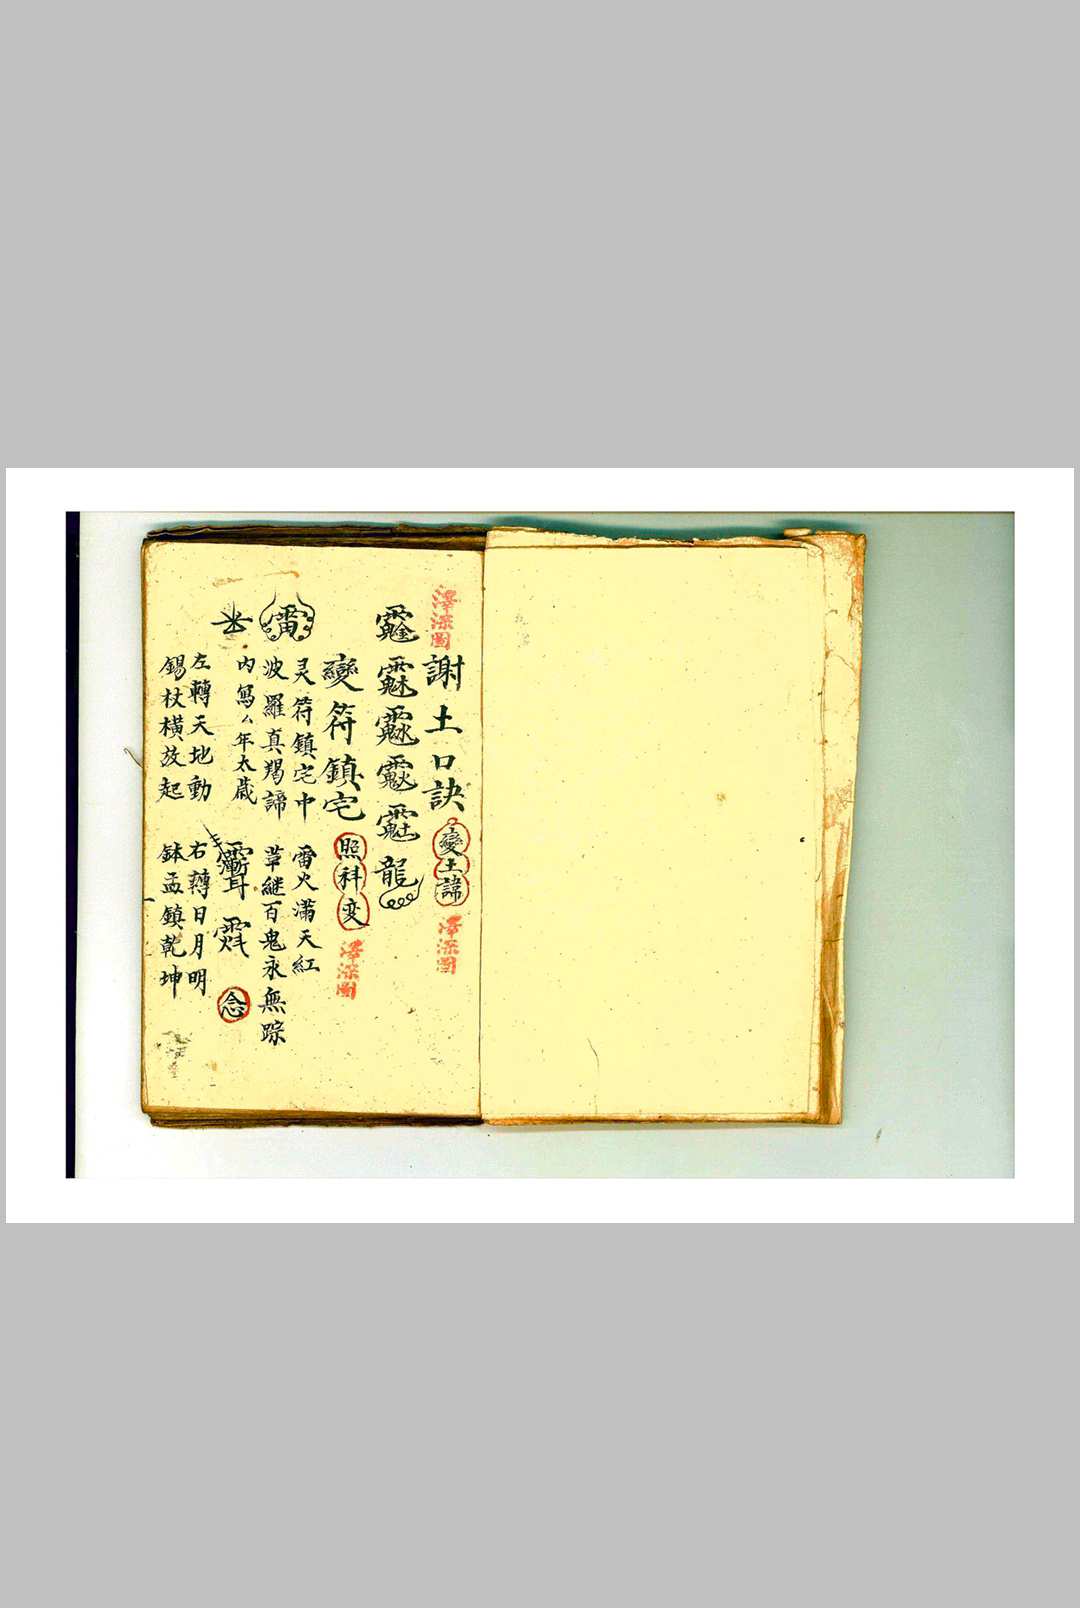 澤深圖
謝土口訣
變土諱
澤深圖
龍
變符鎮宅
照科変
澤深圖
灵符鎮宅中 雷火滿天紅
波羅真羯諦 苹継百鬼永無踪
內寫厶年太歲
念
左轉天地動 右轉日月明
錫杖橫放起 鉢盂鎮乾坤